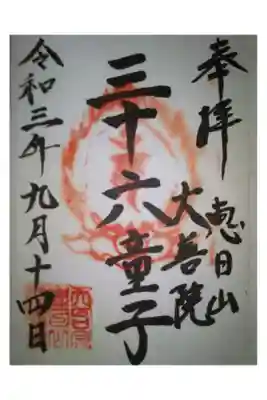 奉拝
恵日山
大善院
三十六童子
令和三年九月十四日